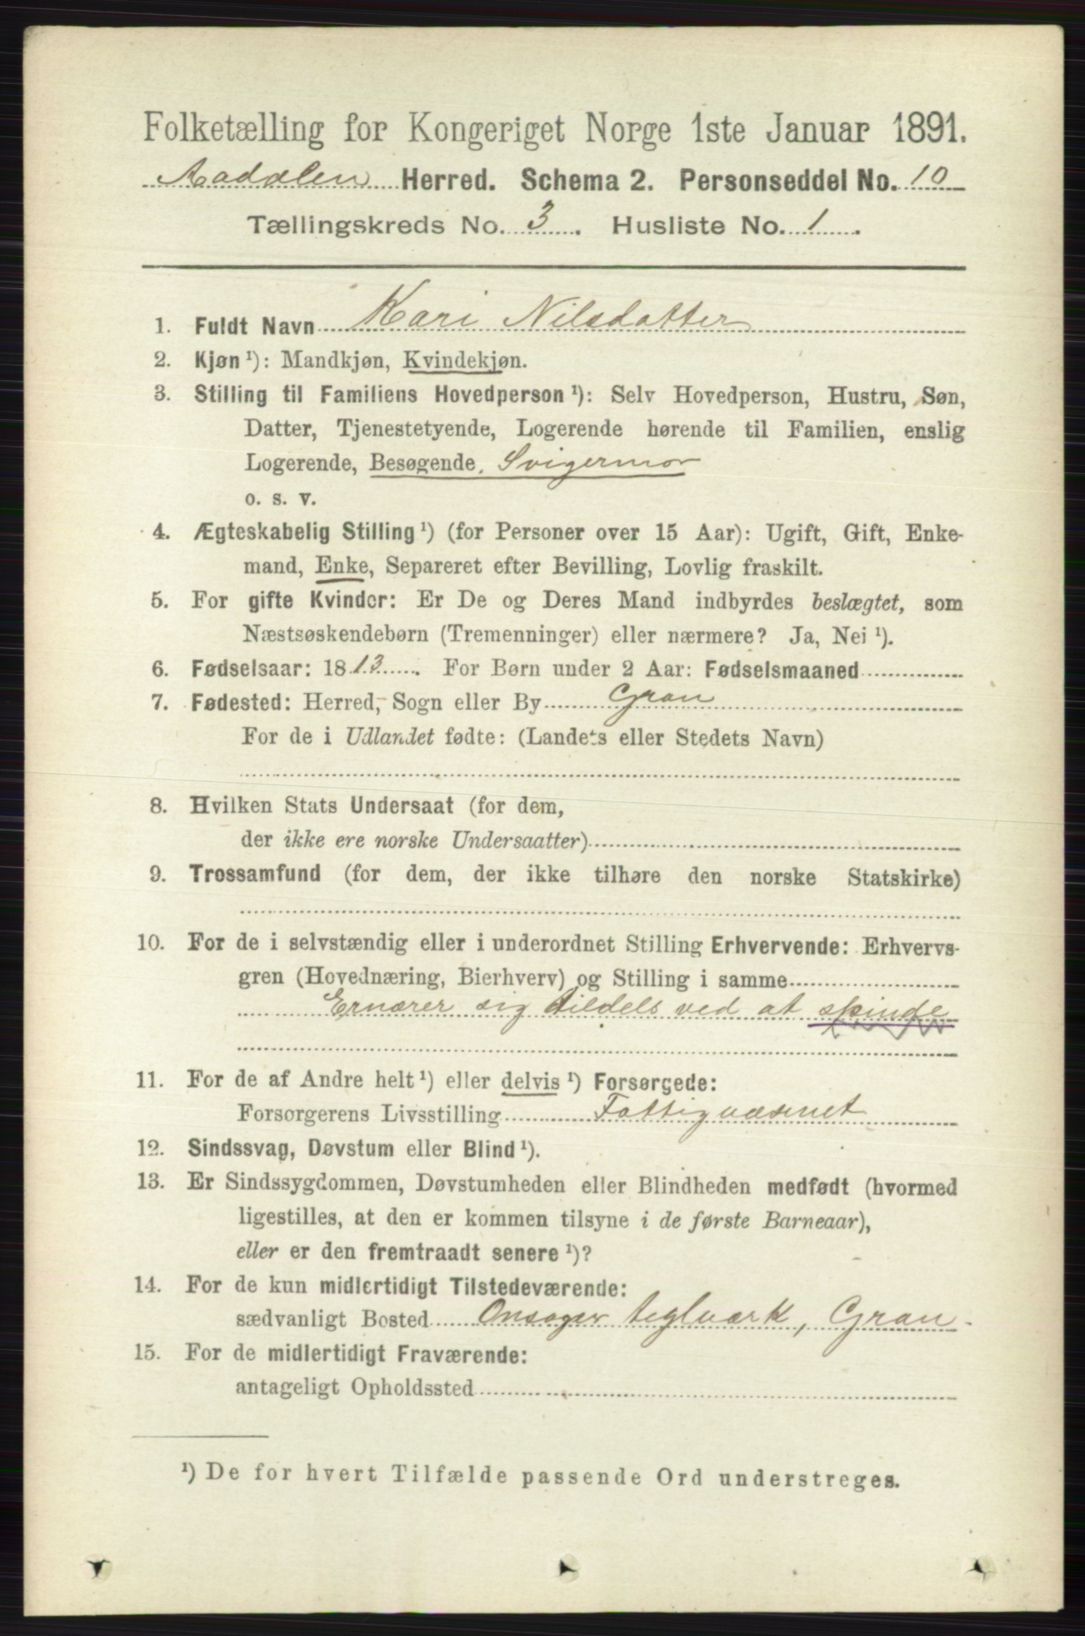 Folketælling for Kongeriget Norge 1ste Januar 1891.
Aadalen Herred. Schema 2. Personseddel No. 10
Tællingskreds No. 3. Husliste No. 1.
1. Fuldt Navn Kari Nilsdatter
2. Kjøn ¹): Mandkjøn, Kvindekjøn.
3. Stilling til Familiens Hovedperson ¹): Selv Hovedperson, Hustru, Søn,
Datter, Tjenestetyende, Logerende hørende til Familien, enslig
Logerende, Besøgende, Svigermor
o. s. v.
4. Ægteskabelig Stilling ¹) (for Personer over 15 Aar): Ugift, Gift, Enke-
mand, Enke, Separeret efter Bevilling, Lovlig fraskilt.
5. For gifte Kvinder: Er De og Deres Mand indbyrdes beslægtet, som
Næstsøskendebørn (Tremenninger) eller nærmere? Ja, Nei ¹).
6. Fødselsaar: 1813. For Børn under 2 Aar: Fødselsmaaned
7. Fødested: Herred, Sogn eller By Gran
For de i Udlandet fødte: (Landets eller Stedets Navn)
8. Hvilken Stats Undersaat (for dem,
der ikke ere norske Undersaatter)
9. Trossamfund (for dem, der ikke tilhøre den norske Statskirke)
10. For de i selvstændig eller i underordnet Stilling Erhvervende: Erhvervs-
gren (Hovednæring, Bierhverv) og Stilling i samme
Ernærer sig tildels ved at spinde
11. For de af Andre helt ¹) eller delvis ¹) Forsørgede:
Forsørgerens Livsstilling Fattigvæsenet
12. Sindssvag, Døvstum eller Blind ¹).
13. Er Sindssygdommen, Døvstumheden eller Blindheden medfødt (hvormed
ligestilles, at den er kommen tilsyne i de første Barneaar),
eller er den fremtraadt senere ¹)?
14. For de kun midlertidigt Tilstedeværende:
sædvanligt Bosted Onsager teglværk, Gran.
15. For de midlertidigt Fraværende:
antageligt Opholdssted
¹) De for hvert Tilfælde passende Ord understreges.